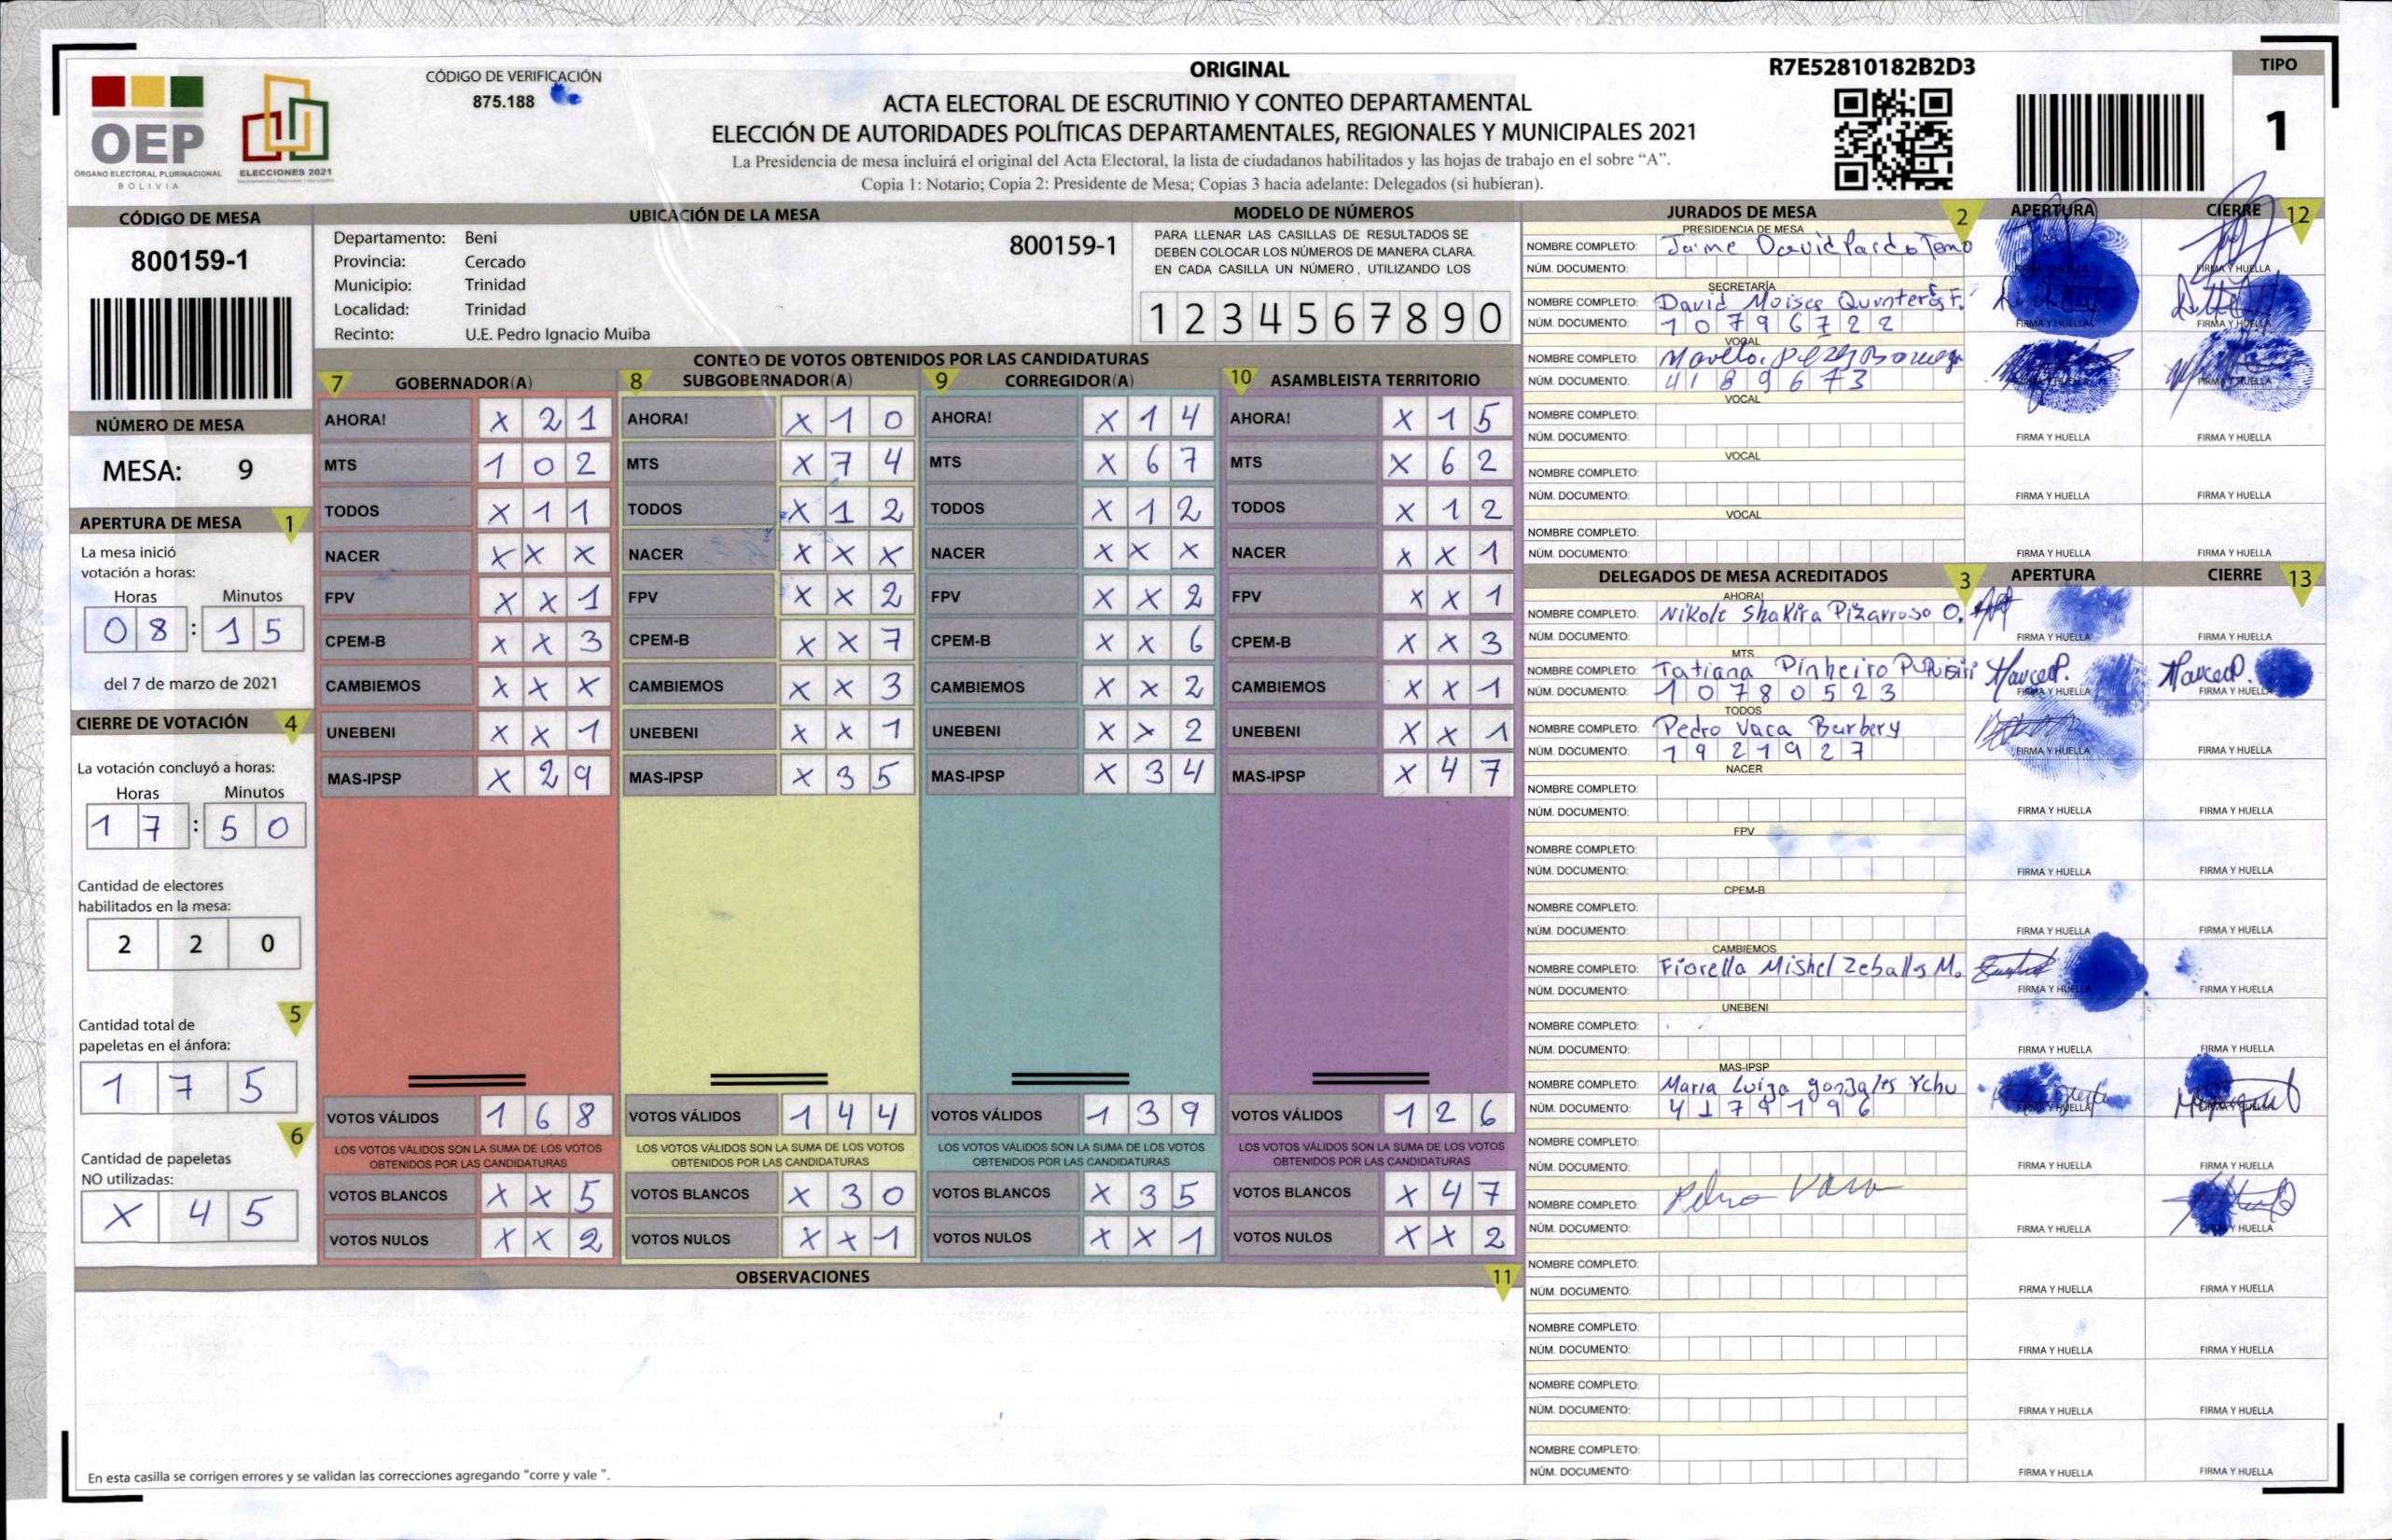 ORIGINAL
R7E52810182B2D3
TIPO
1
CÓDIGO DE VERIFICACIÓN
875.188
OEP
ÓRGANO ELECTORAL PLURINACIONAL
BOLIVIA
ELECCIONES 2021
ACTA ELECTORAL DE ESCRUTINIO Y CONTEO DEPARTAMENTAL
ELECCIÓN DE AUTORIDADES POLÍTICAS DEPARTAMENTALES, REGIONALES Y MUNICIPALES 2021
La Presidencia de mesa incluirá el original del Acta Electoral, la lista de ciudadanos habilitados y las hojas de trabajo en el sobre “A”.
Copia 1: Notario; Copia 2: Presidente de Mesa; Copias 3 hacia adelante: Delegados (si hubieran).
CÓDIGO DE MESA
800159-1
NÚMERO DE MESA
MESA: 9
APERTURA DE MESA 1
La mesa inició
votación a horas:
Horas Minutos
08:15
del 7 de marzo de 2021
CIERRE DE VOTACIÓN 4
La votación concluyó a horas:
Horas Minutos
17:50
Cantidad de electores
habilitados en la mesa:
2 2 0
5
Cantidad total de
papeletas en el ánfora:
1 7 5
6
Cantidad de papeletas
NO utilizadas:
X 4 5
UBICACIÓN DE LA MESA
Departamento: Beni
800159-1
Provincia: Cercado
Municipio: Trinidad
Localidad: Trinidad
Recinto: U.E. Pedro Ignacio Muiba
MODELO DE NÚMEROS
PARA LLENAR LAS CASILLAS DE RESULTADOS SE
DEBEN COLOCAR LOS NÚMEROS DE MANERA CLARA.
EN CADA CASILLA UN NÚMERO, UTILIZANDO LOS
1 2 3 4 5 6 7 8 9 0
CONTEO DE VOTOS OBTENIDOS POR LAS CANDIDATURAS
7 GOBERNADOR(A) 8 SUBGOBERNADOR(A) 9 CORREGIDOR(A) 10 ASAMBLEISTA TERRITORIO
AHORA! X 2 1 AHORA! X 1 0 AHORA! X 1 4 AHORA! X 1 5
MTS 1 0 2 MTS X 7 4 MTS X 6 7 MTS X 6 2
TODOS X 1 1 TODOS X 1 2 TODOS X 1 2 TODOS X 1 2
NACER X X X NACER X X X NACER X X X NACER X X 1
FPV X X 1 FPV X X 2 FPV X X 2 FPV X X 1
CPEM-B X X 3 CPEM-B X X 7 CPEM-B X X 6 CPEM-B X X 3
CAMBIEMOS X X X CAMBIEMOS X X 3 CAMBIEMOS X X 2 CAMBIEMOS X X 1
UNEBENI X X 1 UNEBENI X X 1 UNEBENI X X 2 UNEBENI X X 1
MAS-IPSP X 2 9 MAS-IPSP X 3 5 MAS-IPSP X 3 4 MAS-IPSP X 4 7
VOTOS VÁLIDOS 1 6 8 VOTOS VÁLIDOS 1 4 4 VOTOS VÁLIDOS 1 3 9 VOTOS VÁLIDOS 1 2 6
LOS VOTOS VÁLIDOS SON LA SUMA DE LOS VOTOS LOS VOTOS VÁLIDOS SON LA SUMA DE LOS VOTOS LOS VOTOS VÁLIDOS SON LA SUMA DE LOS VOTOS LOS VOTOS VÁLIDOS SON LA SUMA DE LOS VOTOS
OBTENIDOS POR LAS CANDIDATURAS OBTENIDOS POR LAS CANDIDATURAS OBTENIDOS POR LAS CANDIDATURAS OBTENIDOS POR LAS CANDIDATURAS
VOTOS BLANCOS X X 5 VOTOS BLANCOS X 3 0 VOTOS BLANCOS X 3 5 VOTOS BLANCOS X 4 7
VOTOS NULOS X X 2 VOTOS NULOS X X 1 VOTOS NULOS X X 1 VOTOS NULOS X X 2
OBSERVACIONES 11
En esta casilla se corrigen errores y se validan las correcciones agregando "corre y vale ".
JURADOS DE MESA 2 APERTURA CIERRE 12
PRESIDENCIA DE MESA
NOMBRE COMPLETO: Jaime David Pardo
NÚM. DOCUMENTO: FIRMA Y HUELLA FIRMA Y HUELLA
SECRETARÍA
NOMBRE COMPLETO: David Moises Quinteros F.
NÚM. DOCUMENTO: 10796722 FIRMA Y HUELLA FIRMA Y HUELLA
VOCAL
NOMBRE COMPLETO:
NÚM. DOCUMENTO: 4189673 FIRMA Y HUELLA FIRMA Y HUELLA
VOCAL
NOMBRE COMPLETO:
NÚM. DOCUMENTO: FIRMA Y HUELLA FIRMA Y HUELLA
VOCAL
NOMBRE COMPLETO:
NÚM. DOCUMENTO: FIRMA Y HUELLA FIRMA Y HUELLA
VOCAL
NOMBRE COMPLETO:
NÚM. DOCUMENTO: FIRMA Y HUELLA FIRMA Y HUELLA
DELEGADOS DE MESA ACREDITADOS 3 APERTURA CIERRE 13
AHORA!
NOMBRE COMPLETO: Nikole Shakira Pizarroso O.
NÚM. DOCUMENTO: FIRMA Y HUELLA
MTS
NOMBRE COMPLETO: Tatiana Pinheiro
NÚM. DOCUMENTO: 10780523 FIRMA Y HUELLA FIRMA Y HUELLA
TODOS
NOMBRE COMPLETO: Pedro Vaca Barbery
NÚM. DOCUMENTO: 1921927 FIRMA Y HUELLA FIRMA Y HUELLA
NACER
NOMBRE COMPLETO:
NÚM. DOCUMENTO: FIRMA Y HUELLA FIRMA Y HUELLA
FPV
NOMBRE COMPLETO:
NÚM. DOCUMENTO: FIRMA Y HUELLA FIRMA Y HUELLA
CPEM-B
NOMBRE COMPLETO:
NÚM. DOCUMENTO: FIRMA Y HUELLA FIRMA Y HUELLA
CAMBIEMOS
NOMBRE COMPLETO: Fiorella Mishel Zeballos M.
NÚM. DOCUMENTO: FIRMA Y HUELLA FIRMA Y HUELLA
UNEBENI
NOMBRE COMPLETO:
NÚM. DOCUMENTO: FIRMA Y HUELLA FIRMA Y HUELLA
MAS-IPSP
NOMBRE COMPLETO: Maria Luiza gonzales Ychu
NÚM. DOCUMENTO: FIRMA Y HUELLA FIRMA Y HUELLA
NOMBRE COMPLETO:
NÚM. DOCUMENTO: FIRMA Y HUELLA FIRMA Y HUELLA
NOMBRE COMPLETO: Pedro Vaca
NÚM. DOCUMENTO: FIRMA Y HUELLA FIRMA Y HUELLA
NOMBRE COMPLETO:
NÚM. DOCUMENTO: FIRMA Y HUELLA FIRMA Y HUELLA
NOMBRE COMPLETO:
NÚM. DOCUMENTO: FIRMA Y HUELLA FIRMA Y HUELLA
NOMBRE COMPLETO:
NÚM. DOCUMENTO: FIRMA Y HUELLA FIRMA Y HUELLA
NOMBRE COMPLETO:
NÚM. DOCUMENTO: FIRMA Y HUELLA FIRMA Y HUELLA